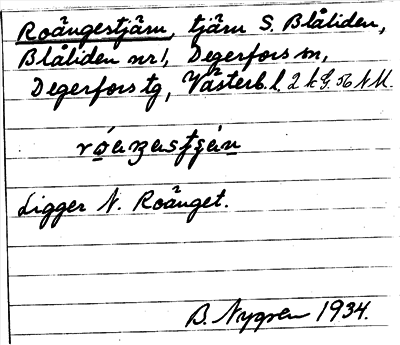 Roängestjärn, tjärn S. Blåliden,
Blåliden nr 1, Degerfors sn,
Degerfors tg, Västerb. l. 2 k G. 56 N M.
Ligger N. Roänget.
B. Nygren 1934.